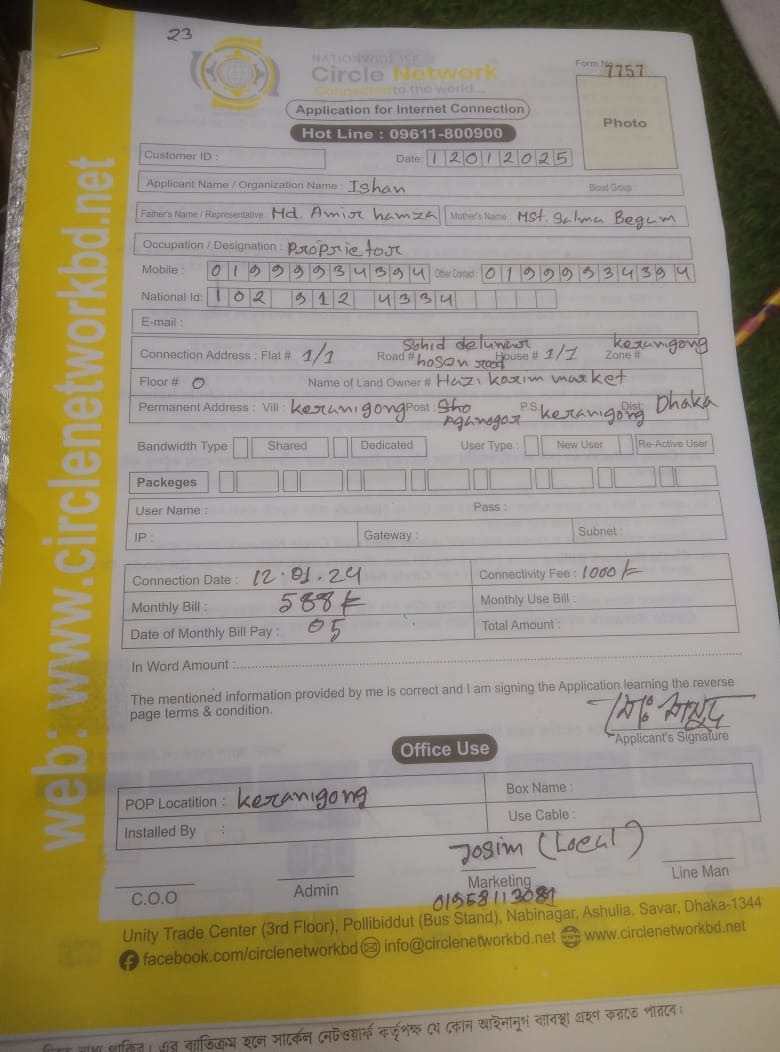 23
NATIONWIDE ISP
Circle Network
Connected to the world...
Form No. 7757
Application for Internet Connection
Hot Line : 09611-800900
Photo
Customer ID :
Date: 12012025
Applicant Name / Organization Name : Ishan Blood Group :
Father's Name / Representative : Md. Amir hamza Mother's Name : Mst. Salma Begum
Occupation / Designation : Proprietor
Mobile : 01999934394 Other Contact : 01999934394
National Id: 102 912 4334
E-mail :
Connection Address : Flat # 1/1 Road # Sohid delunar hoson road House # 1/1 Zone # keranigong
Floor # 0 Name of Land Owner # Hazi korim market
Permanent Address : Vill : keranigong Post : Sho P.S. keranigong Dist: Dhaka
Bandwidth Type Shared Dedicated User Type : New User Re-Active User
Packeges
User Name : Pass :
IP : Gateway : Subnet :
Connection Date : 12.01.24 Connectivity Fee : 1000/=
Monthly Bill : 588/= Monthly Use Bill :
Date of Monthly Bill Pay : 05 Total Amount :
In Word Amount :
The mentioned information provided by me is correct and I am signing the Application learning the reverse
page terms & condition.
Applicant's Signature
Office Use
POP Locatition : keranigong Box Name :
Installed By : Use Cable :
Josim (Local)
C.O.O Admin Marketing Line Man
Unity Trade Center (3rd Floor), Pollibiddut (Bus Stand), Nabinagar, Ashulia, Savar, Dhaka-1344
facebook.com/circlenetworkbd info@circlenetworkbd.net www.circlenetworkbd.net
web: www.circlenetworkbd.net
এর ব্যতিক্রম হলে সার্কেল নেটওয়ার্ক কর্তৃপক্ষ যে কোন আইনানুগ ব্যবস্থা গ্রহণ করতে পারবে।